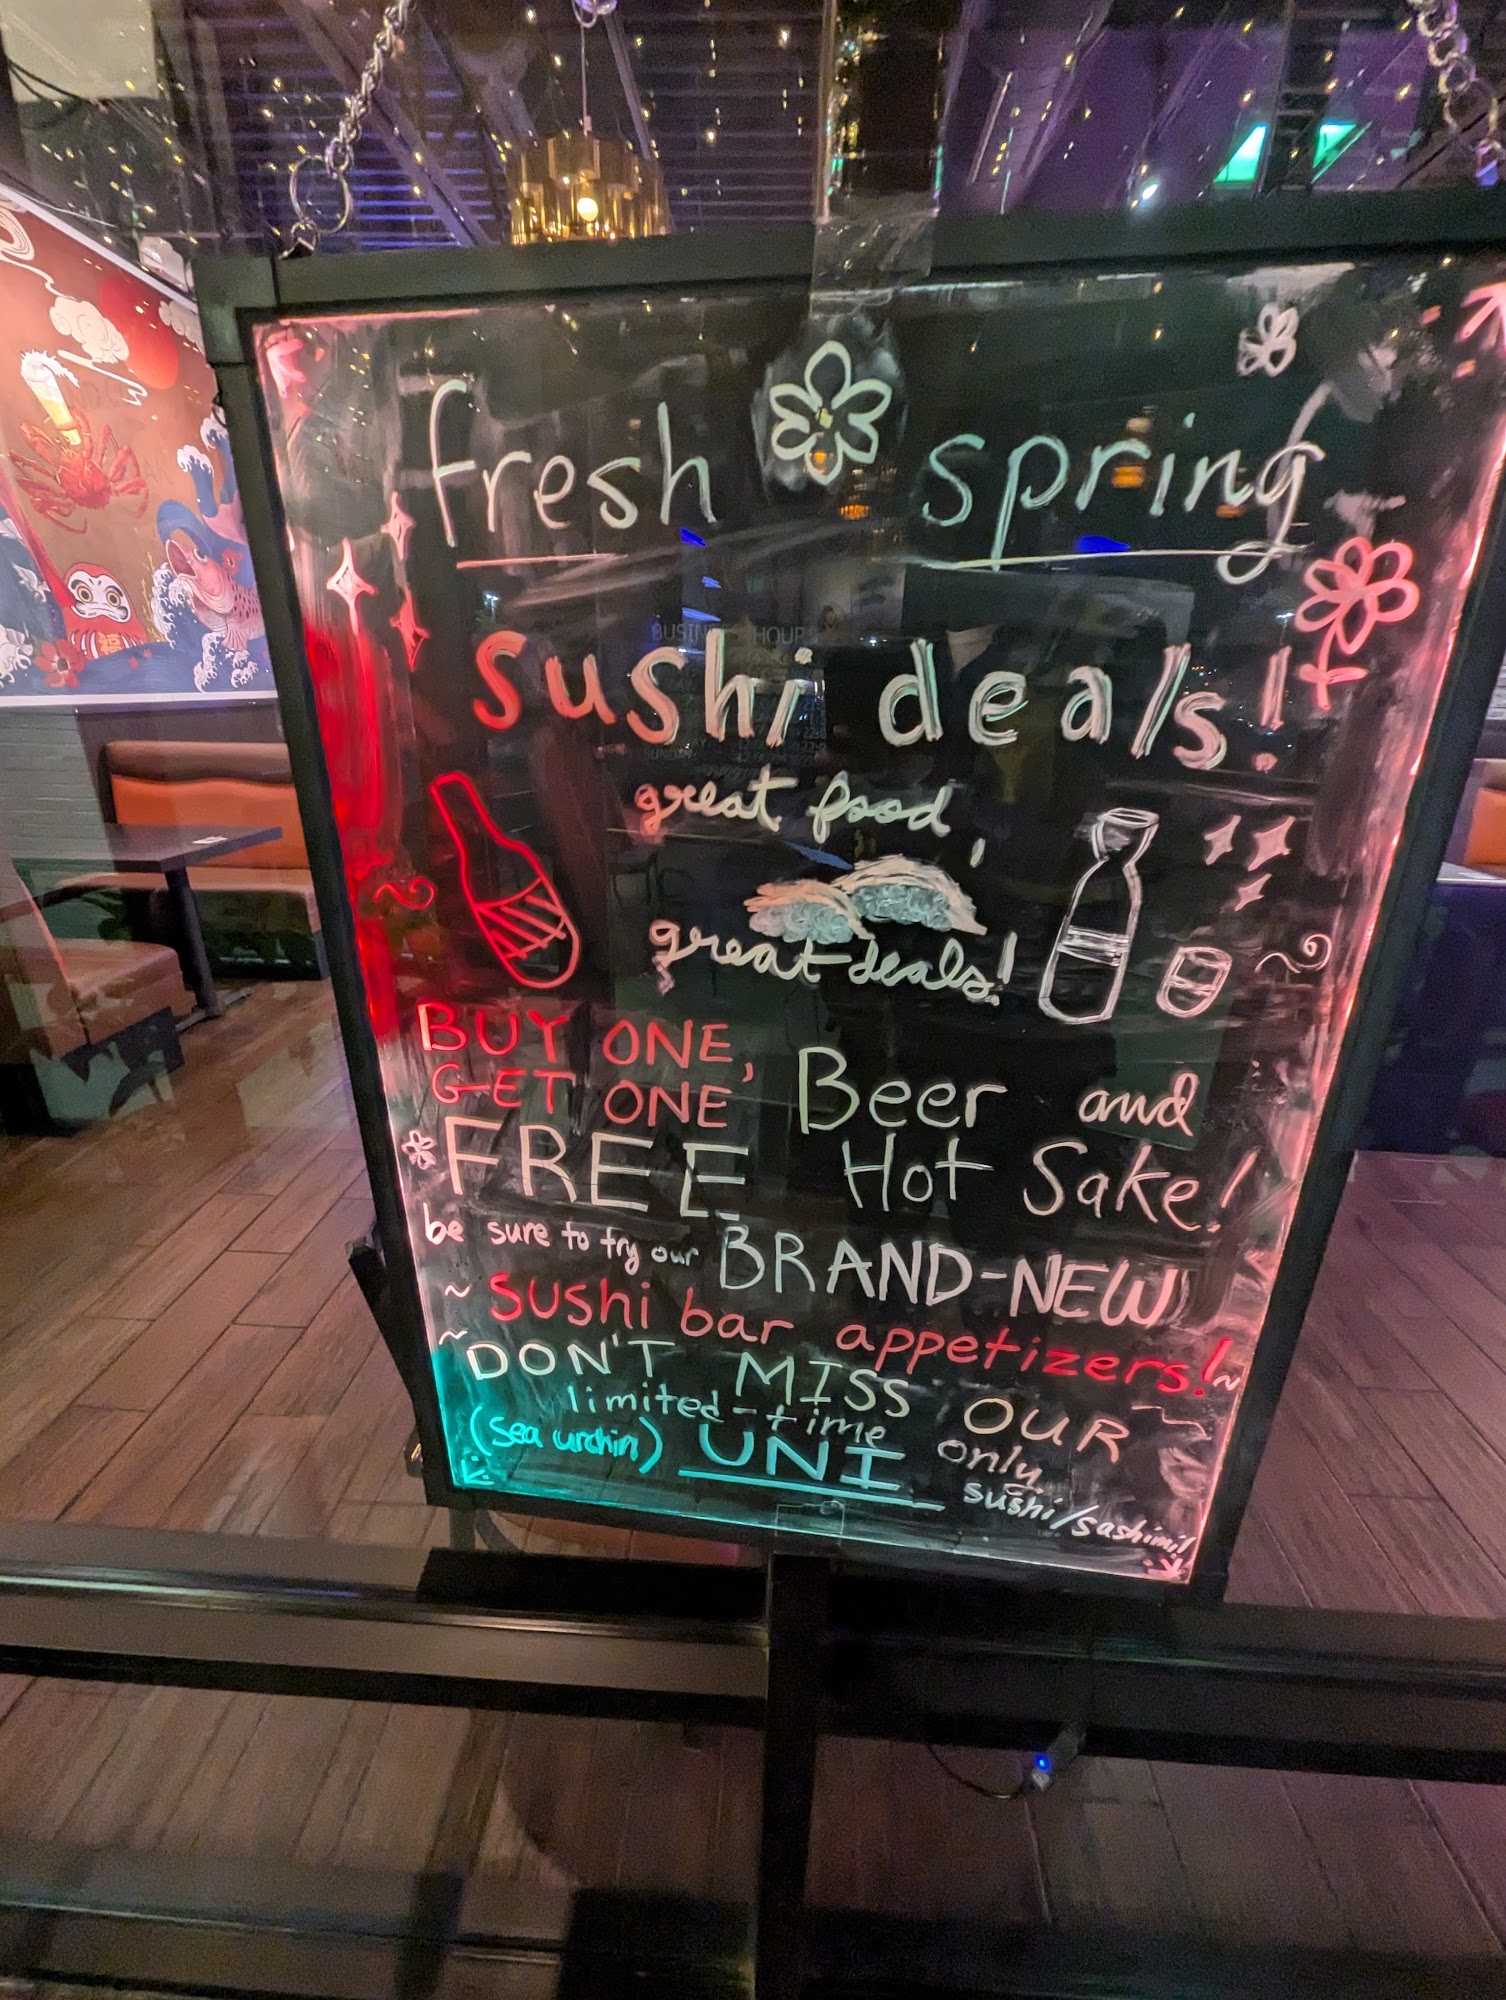 fresh spring
sushi deals!
great food,
great deals!
BUY ONE,
GET ONE
FREE
Beer and
Hot Sake!
be sure to try our BRAND-NEW
~ sushi bar appetizers! ~
~ DON'T MISS OUR ~
limited-time only
(sea urchin) UNI
sushi/sashimi!
BUSIN HOUR
福